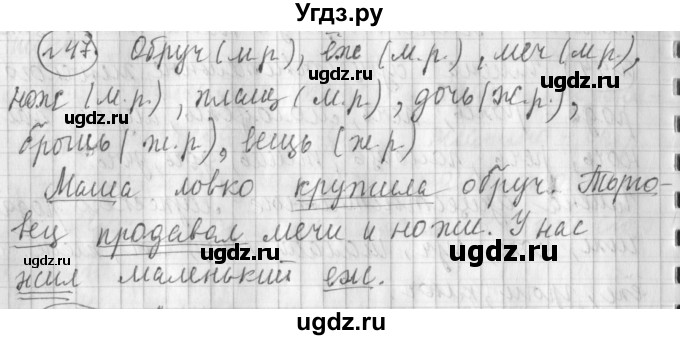 Угдз.ру
247. Обруч (м.р.), ёж (м.р.), меч (м.р.),
нож (м.р.), плащ (м.р.), дочь (ж.р.),
брошь (ж.р.), вещь (ж.р.)
Маша ловко кружила обруч. Торго-
вец продавал мечи и ножи. У нас
жил маленький ёж.
ugdz.ru
ugdz.ru
ugdz.ru
ugdz.ru
ugdz.ru
ugdz.ru
ugdz.ru
ugdz.ru
ugdz.ru
ugdz.ru
ugdz.ru